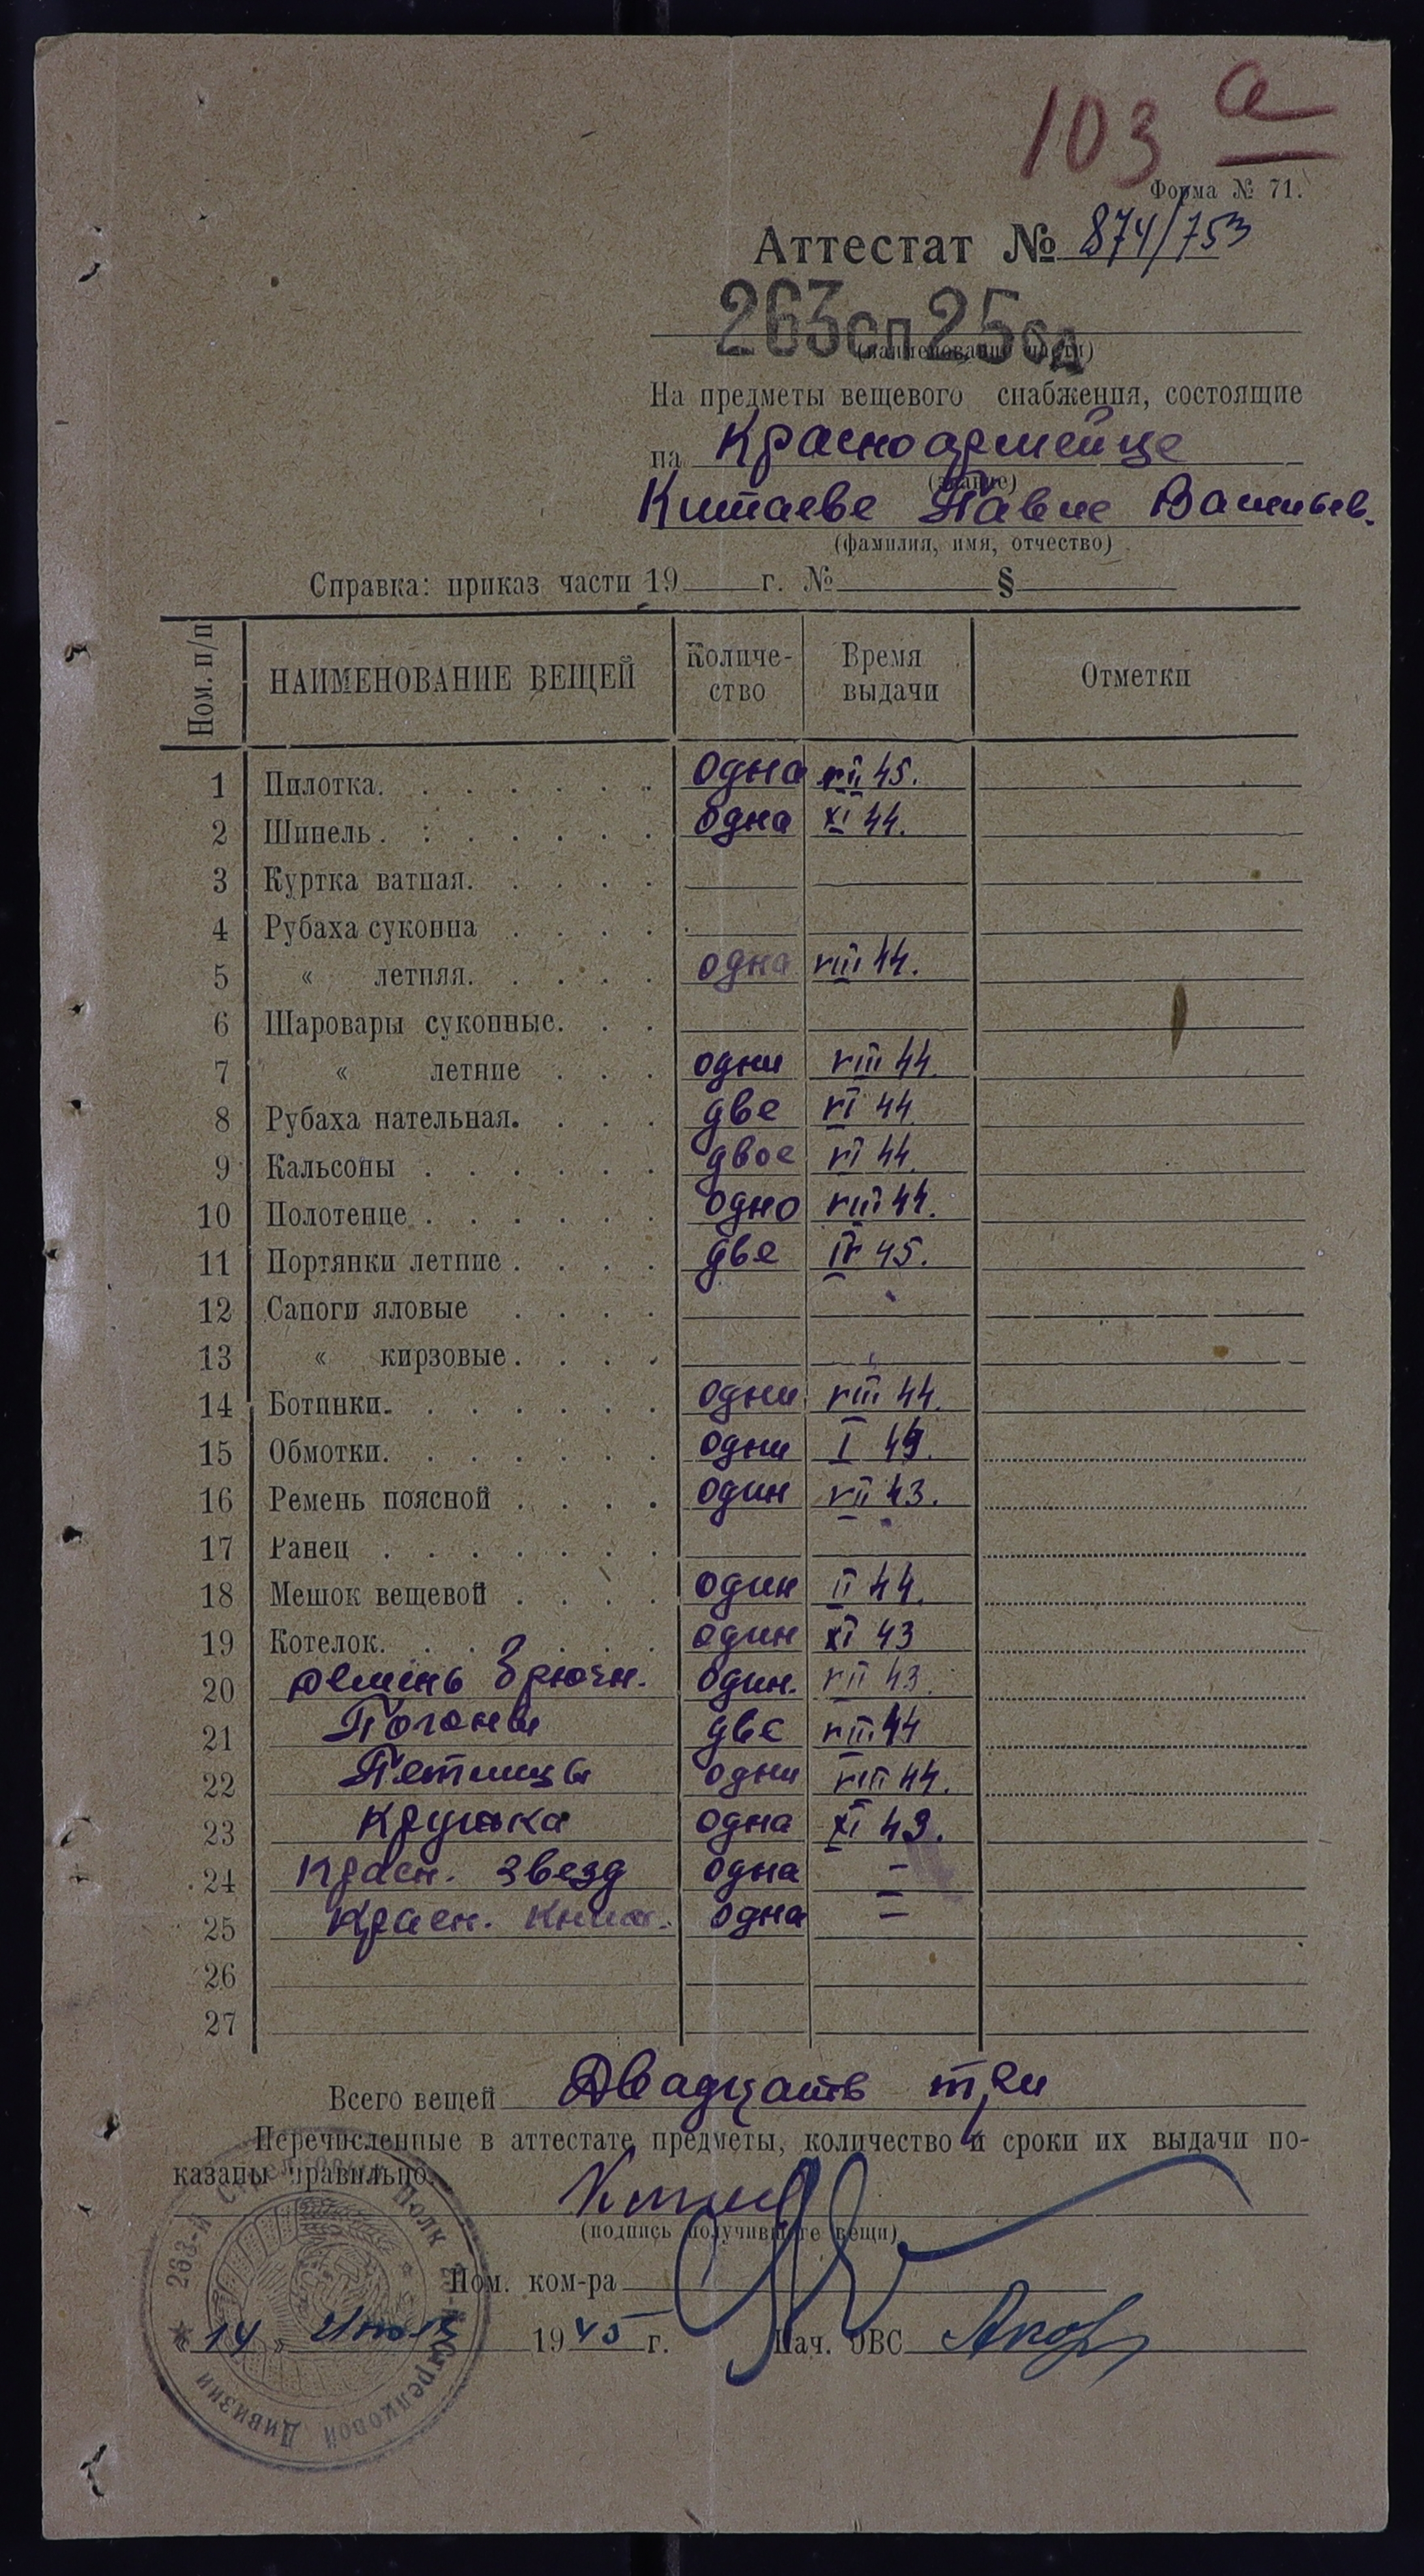 103 а
Форма № 71.
Аттестат № 874/753
263сп 25сд
(наименование части)
На предметы вещевого снабжения, состоящие
на Красноармейце
(звание)
Китаеве Павле Васильев.
(фамилия, имя, отчество)
Справка: приказ части 19 г. № §
Ном. п/п НАИМЕНОВАНИЕ ВЕЩЕЙ Количе-ство Время выдачи Отметки
1 Пилотка. одна VII 45.
2 Шинель. одна XI 44.
3 Куртка ватная.
4 Рубаха суконна
5 « летняя. одна VIII 44.
6 Шаровары суконные.
7 « летние одни VIII 44.
8 Рубаха нательная. две VI 44.
9 Кальсоны двое VI 44.
10 Полотенце одно VIII 44.
11 Портянки летние две IV 45.
12 Сапоги яловые
13 « кирзовые
14 Ботинки. одни VIII 44.
15 Обмотки. одни I
16 Ремень поясной один VII 43.
17 Ранец
18 Мешок вещевой один II 44.
19 Котелок. один XI 43
20 Ремень брючн. один. VII 43.
21 Погоны две VIII 44
22 Петлицы одни VIII 44.
23 Кружка одна XI 43.
24 Красн. звезд одна -
25 Красн. книж. одна =
26
27
Всего вещей Двадцать три
Перечисленные в аттестате предметы, количество и сроки их выдачи по-
казаны правильно.
(подпись получившего вещи)
Пом. ком-ра
« 14 » Июля 1945 г. Нач. ОВС
263-й Стрелковый Полк 25-й Стрелковой Дивизии